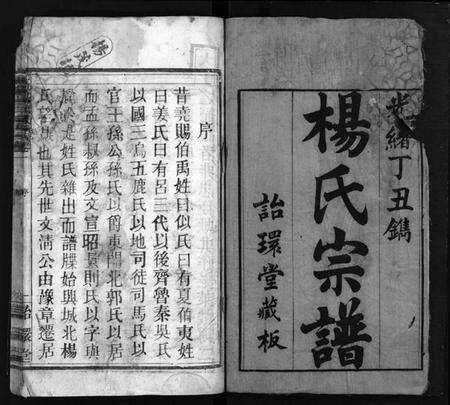 光緒丁丑鐫
楊氏宗譜
詒環堂藏板
序
昔堯賜伯禹姓曰姒氏曰有夏伯夷姓
曰姜氏曰有呂三代以後齊魯秦吳氏
以國三烏五鹿氏以地司徒司馬氏以
官王孫公孫氏以爵東門北郭氏以居
而孟孫叔孫及文宣昭景則氏以字與
謚於是姓氏雜出而譜牒始興城北楊
氏 也其先世文清公由豫章遷居